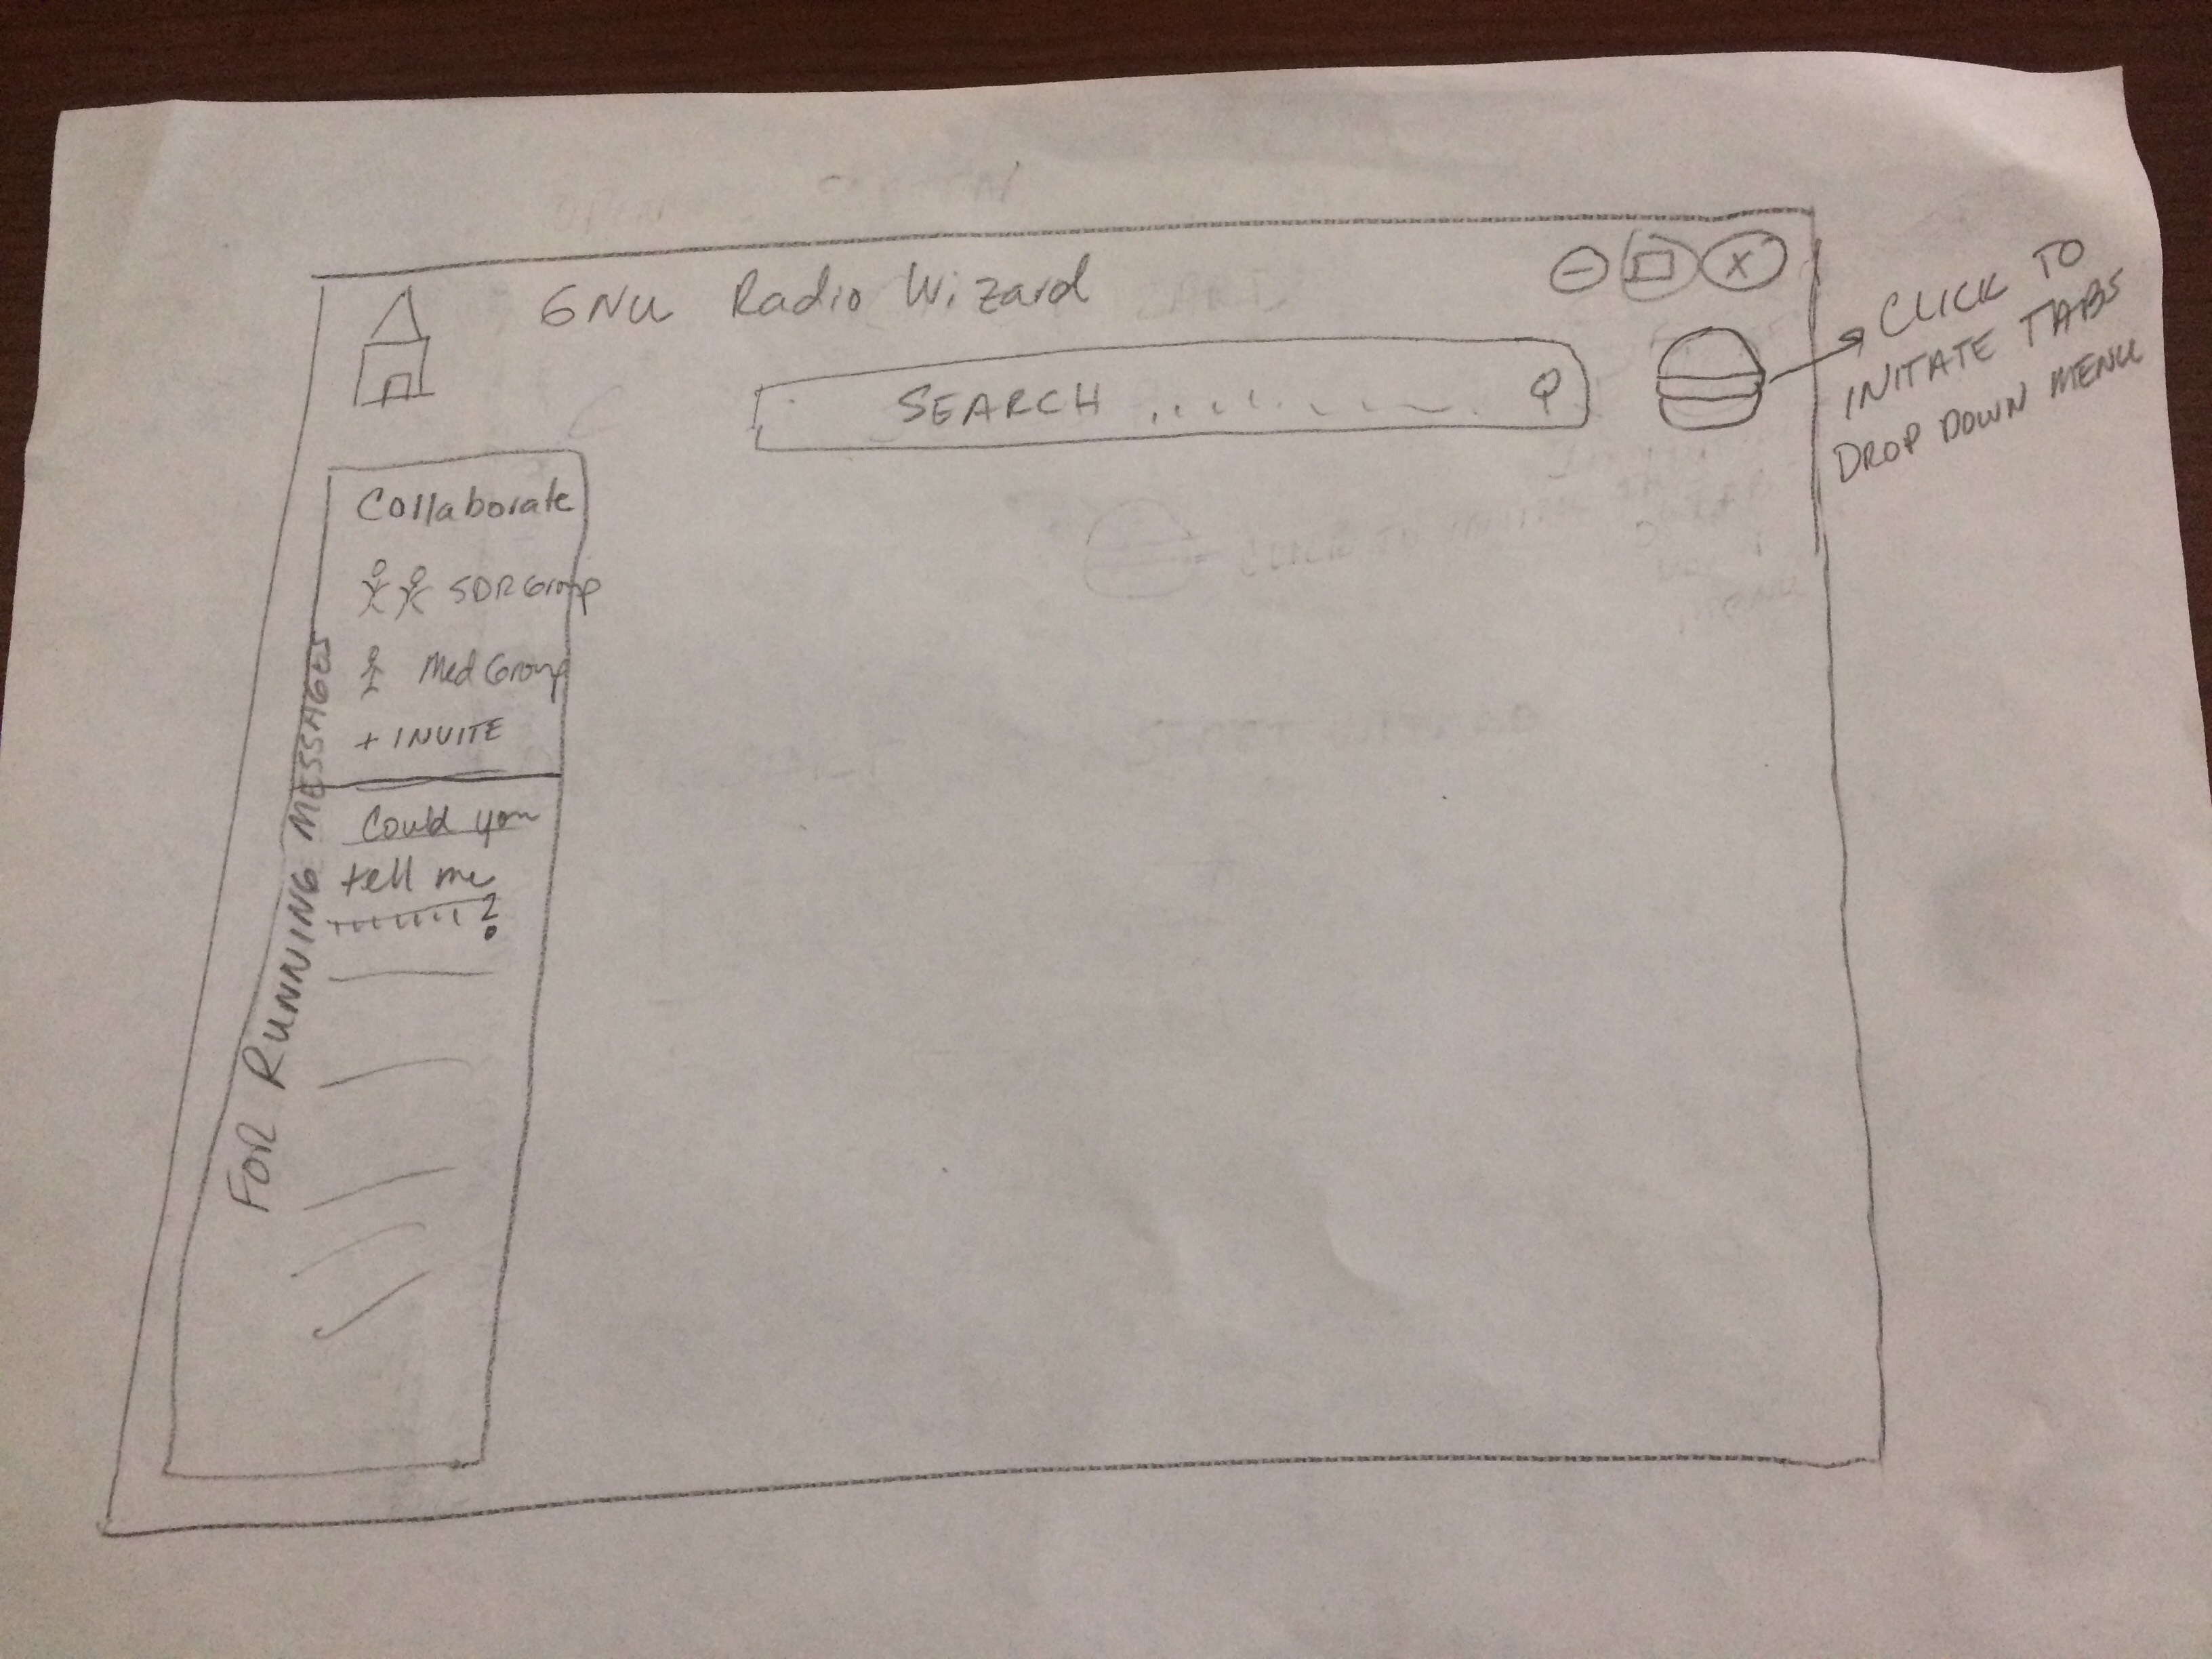 GNU Radio Wizard
SEARCH .........
CLICK TO
INITATE TABS
DROP DOWN MENU
Collaborate
SDR Group
Med Group
+ INVITE
Could you
tell me
........?
FOR RUNNING MESSAGES